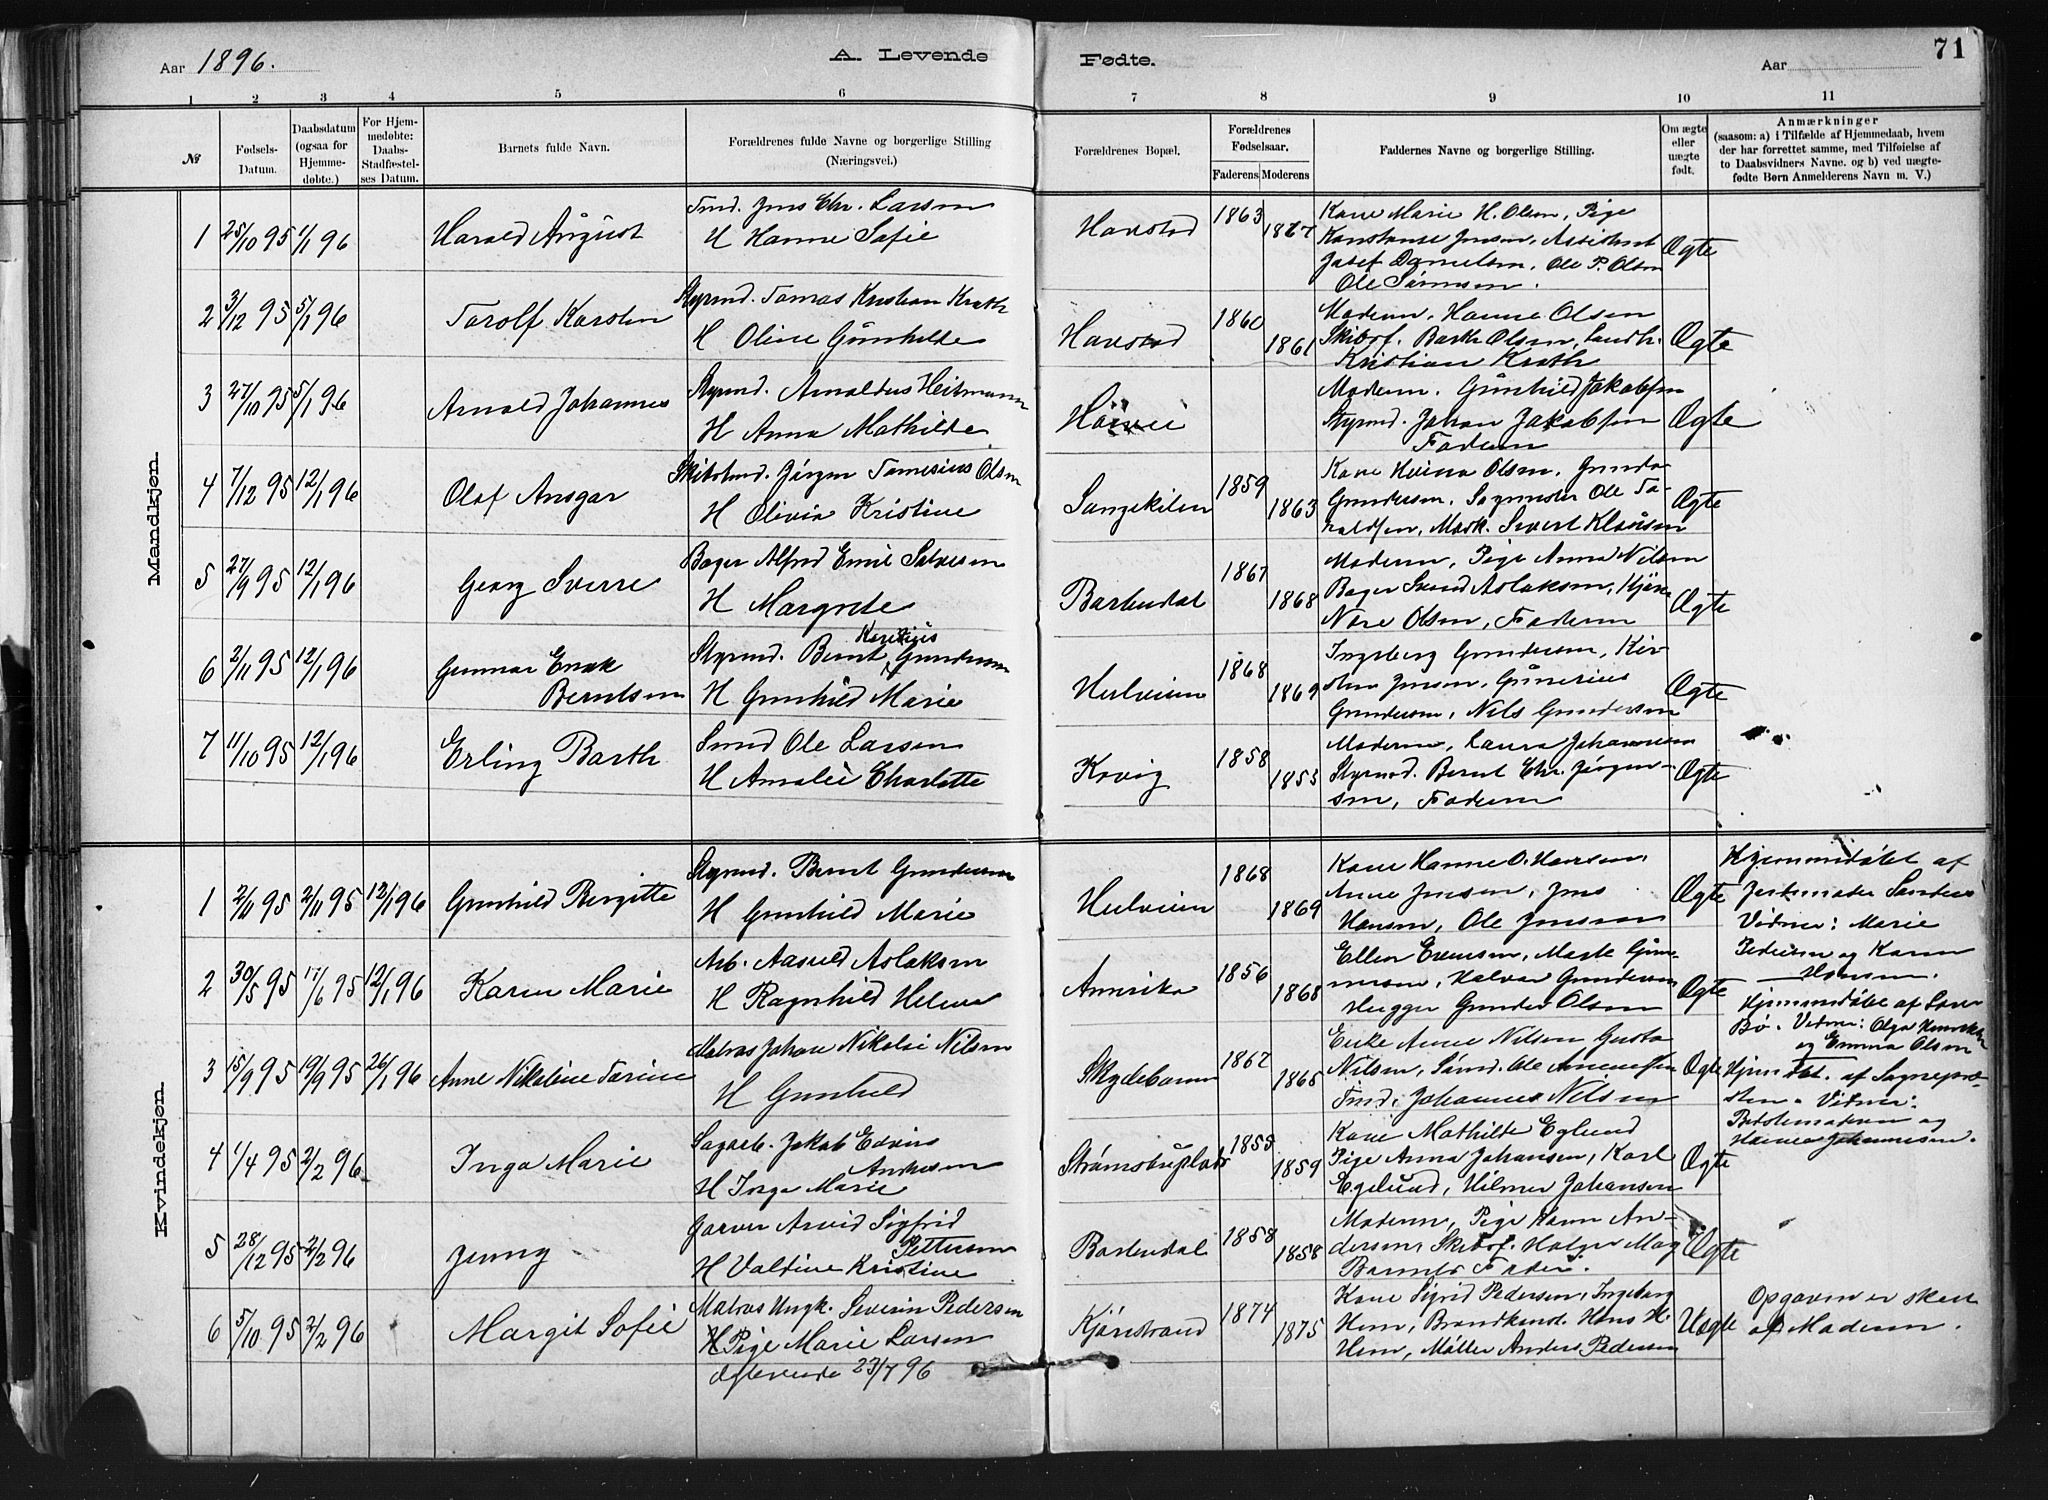 Aar 1896.
A. Levende
Fødte.
Aar
71
1 2 3 4 5 6 7 8 9 10 11
№
Fødsels-Datum.
Daabsdatum (ogsaa for Hjemme-døbte.)
For Hjem-medøbte: Daabs-Stadfæstel-ses Datum.
Barnets fulde Navn.
Forældrenes fulde Navne og borgerlige Stilling (Næringsvei.)
Forældrenes Bopæl.
Forældrenes Fødselsaar.
Faderens Moderens
Faddernes Navne og borgerlige Stilling.
Om ægte eller uægte født.
Anmærkninger
(saasom: a) i Tilfælde af Hjemmedaab, hvem
der har forrettet samme, med Tilføielse af
to Daabsvidners Navne. og b) ved uægte-
fødte Børn Anmelderens Navn m. V.)
Mandkjøn.
1 25/10 95 1/1 96 Harald August
Tmd. Jens Chr. Larsen
H Hanne Sofie
Havstad 1863 1867
Kone Marie H. Olsen, Pige
Konstanse Jensen, Assistent
Josef Danielsen, Ole P. Olsen
Ole Sørensen.
Ægte
2 3/12 95 5/1 96 Torolf Karsten
Styrmd. Tomas Kristian Krath
H Oline Gunhilde
Havstad 1860 1861
Moderen, Hanne Olsen
Skibsf. Barth Olsen,
Kristian Krath
Ægte
3 27/10 95 5/1 96 Arnold Johannes
Styrmd. Arnoldus Heitmann
H Anna Mathilde
Moderen. Gunhild Jakobsen
Styrmd. Johan Jakobsen
Faderen
Ægte
4 7/12 95 12/1 96 Olaf Ansgar
Skibstmd. Jørgen Tomesius Olsen
H Olivia Kristine
Songekilen 1859 1863
Kone Helena Olsen, Gunda
Gundersen, Ole To-
raldsen, Sivert Klausen
Ægte
5 27/9 95 12/1 96 Georg Sverre
Bager Alfred Emil Salvesen
H Margrete
Barbudal 1867 1868
Moderen, Pige Anna Nilsen
Bager Svend Aslaksen,
Olsen, Faderen
Ægte
6 2/11 95 12/1 96 Gunnar Enok
Berntsen
Karenius
Styrmd. Bernt Gundersen
H Gunhild Marie
Helveien 1868 1869
Ingeborg Gundersen, Kir-
sten Jensen, Gunerius
Gundersen, Nils Gundersen
Ægte
7 11/10 95 12/1 96 Erling Barth
Smed Ole Larsen
H Amalie Charlotte
Krøvig 1858 1853
Moderen, Laura Johannesen
Styrmd. Bernt Chr. Jørgen-
sen, Faderen
Ægte
Kvindekjøn.
1 2/11 95 2/11 95 12/1 96 Gunhild Birgitte
Styrmd. Bernt Gundersen
H Gunhild Marie
Helveien 1868 1869
Kone Hanne O. Hansen,
Anne Jensen, Jens
Hansen, Ole Jensen
Ægte
Hjemmedøbt af
Jordmoder
Vidner: Marie
Pedersen og Karen
Hansen.
2 30/5 95 17/6 95 12/1 96 Karen Marie
Arb. Aasuld Aslaksen
H Ragnhild Helene
Amerika 1856 1868
Ellen Evensen, Marte Gun-
nersen, Halvor Gundersen
Hugger Gunder Olsen
Ægte
Hjemmedøbt af
Bø. Vidner: Olga Henriksen
og Emma Olsen
3 15/9 95 19/9 95 26/1 96 Anne Nikoline Torine
Matros Johan Nikolai Nilsen
H Gunhild
Skydebanen 1862 1865
Enke Anne Nilsen Gusta
Nilsen, Sømd. Ole
Tmd. Johannes Nilsen
Ægte
Hjemdøbt. af Sognepræ-
sten. Vidner:
og
Johannesen.
4 1/4 95 2/2 96 Inga Marie
Sagarb. Jakob Edvin
Andersen
H Inga Marie
Strømsbuplads 1855 1859
Kone Mathilde Eglund
Pige Anna Johansen, Karl
Egelund, Hilmer Johansen
Ægte
5 28/12 95 2/2 96 Jenny
Garver Arvid Sigfrid
Pettersen
H Valdine Kristine
Barbudal 1858 1858
Moderen, Pige Karen An-
dersen, Skibsf. Holger
Barnets Fader.
Ægte
6 5/10 95 2/2 96 Margit Sofie
Matros Ungk. Severin Pedersen
Pige Marie Larsen
Ægteviede 23/7 96
Kjørstrand 1874 1875
Kone Sigrid Pedersen, Ingeborg
Hem, Brandkonst. Hans H.
Hem, Møller Anders Pedersen
Uægte
Opgaven er skeet
af Moderen.